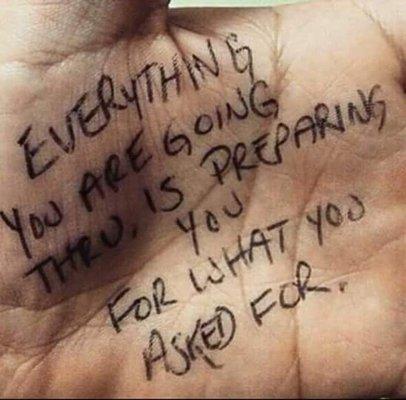 EVERYTHING
YOU ARE GOING
THRU, IS PREPARING
YOU
FOR WHAT YOU
ASKED FOR.